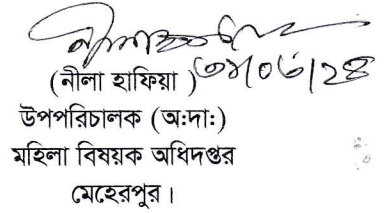 (নীলা হাফিয়া )
উপপরিচালক (অ:দা:)
মহিলা বিষয়ক অধিদপ্তর
মেহেরপুর।